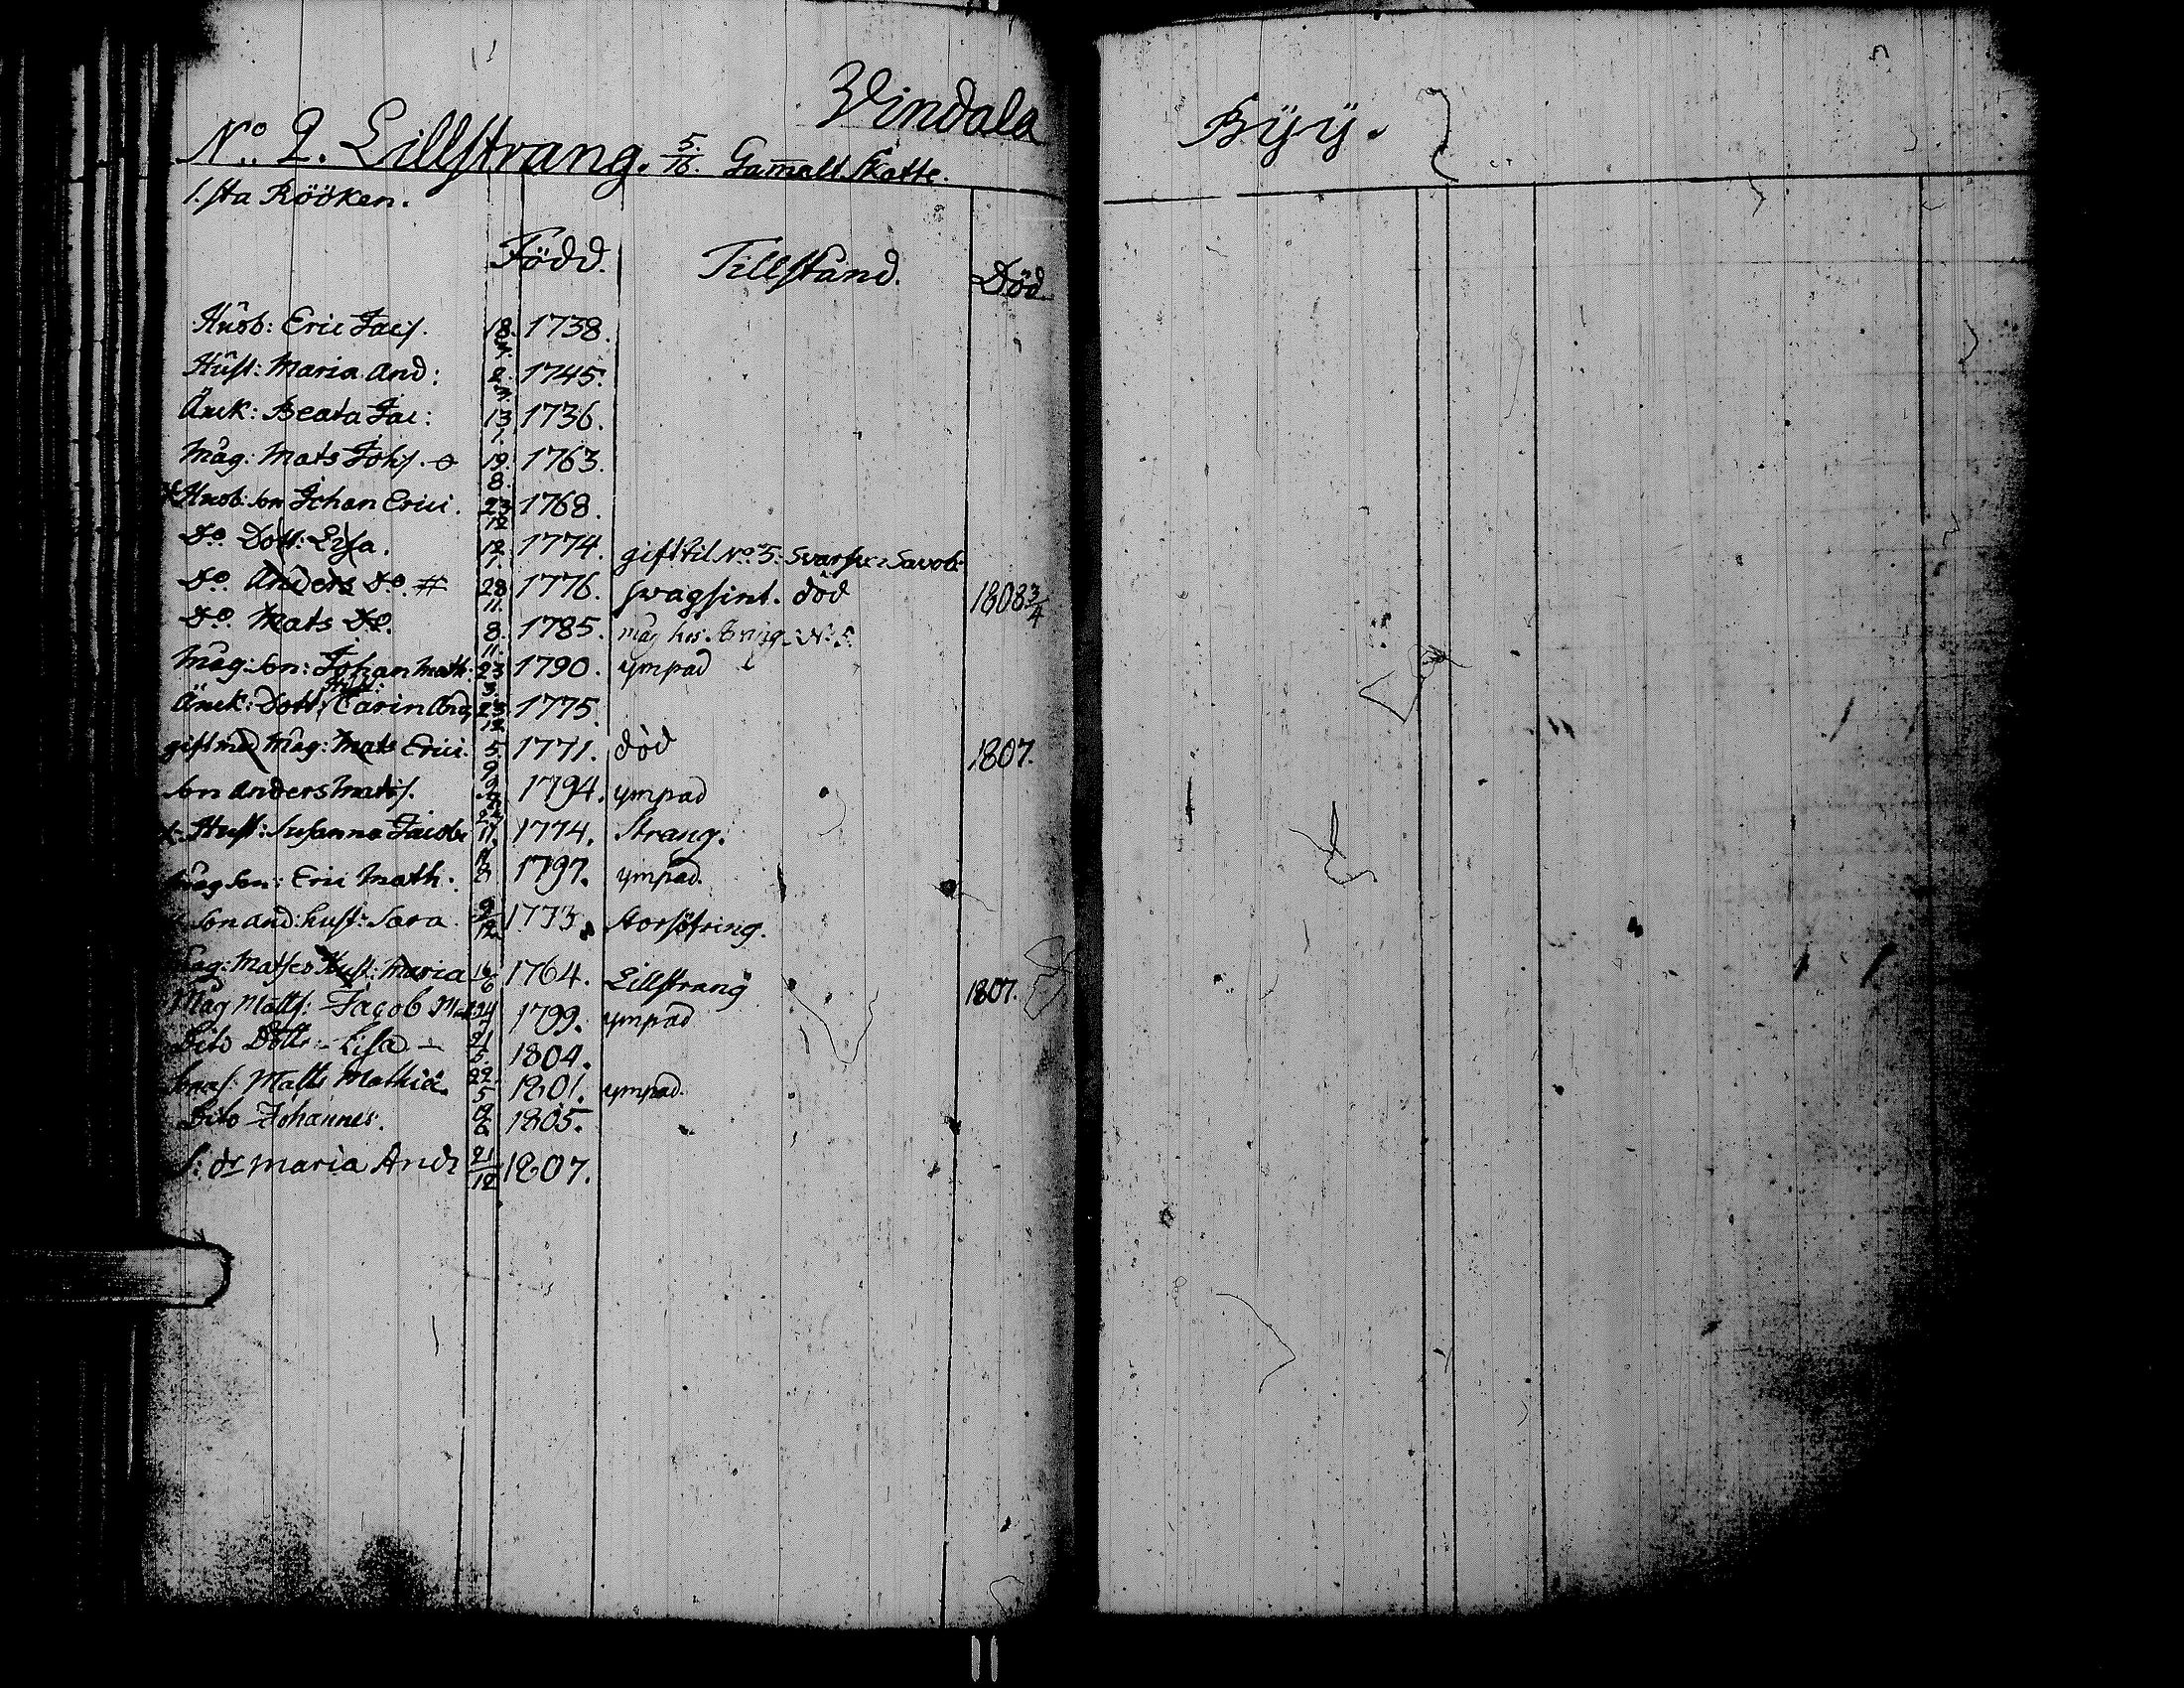 Vindala Byÿ.
No. 2. Lillstrang. 5/16. Gamalt Skatte.
1. sta Rööken.
Född. Tillstånd. Död
Husb: Eric Jacs. 18. 1738.
Hust: Maria And: 2. 3. 1745.
Änk: Beata Jac: 13 1. 1736.
Måg: Mats Johs. 19. 8. 1763.
Husb: son Johan Erici. 23 12 1768.
Do. Dott: Lisa. 12. 1. 1774. gift til No. 5:
Do. Anders Do. # 28 11. 1776. svagsint. död 1808 3/4
Do. Mats Do. 8. 11. 1785. måg hos
Måg: son: Johan Math. 23 3. 1790. ympad
Änck: Dott: Hust: Carin And. 23 12 1775.
gift med Måg: Mats Erici. 5 9 1771. död 1807.
son Anders Mats. 1794. ympad
Hust: Susanna Jacobs 17. 1774. Strang.
Måg son: Eric Math. 8 1797. ympad.
son And: hust: Sara 9/12 1773. Storsöfring.
Måg: Matses Hust: Maria 16 6 1764. Lillstrang 1807.
Måg Matts: Jacob 24 1799. ympad
Dito Dott: Lisa 21 5. 1804.
Matts Mathiæ. 22. 5 1801. ympad.
Dito Johannes. 12 6. 1805.
Maria And: 21/12 1807.